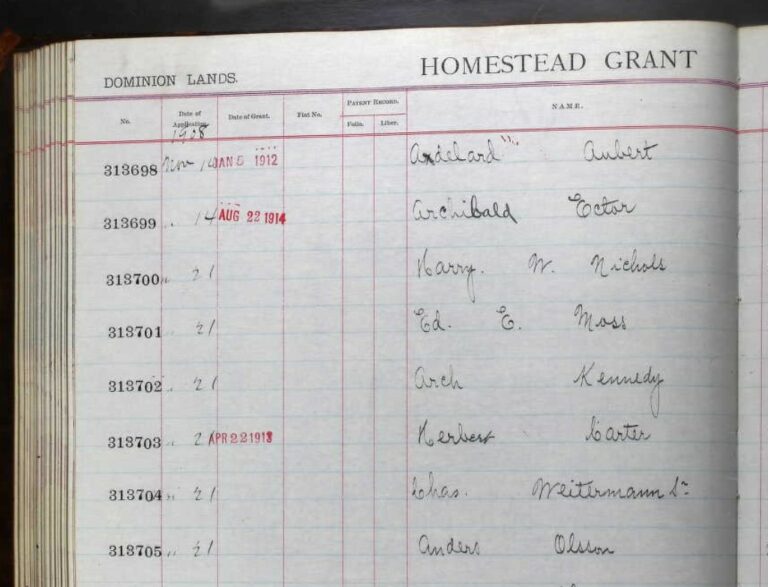 DOMINION LANDS. HOMESTEAD GRANT
No. Date of Application. Date of Grant. Fiat No. PATENT RECORD. NAME.
Folio. Liber.
1908
313698 Nov 10 JAN 5 1912 Adelard Aubert
313699 " 14 AUG 22 1914 Archibald Ector
313700 " 21 Harry. W. Nichols
313701 " 21 Ed. E. Moss
313702 " 21 Arch Kennedy
313703 " 21 APR 22 1913 Herbert Carter
313704 " 21 Chas. Weitermann Sr
313705 " 21 Anders Olsson